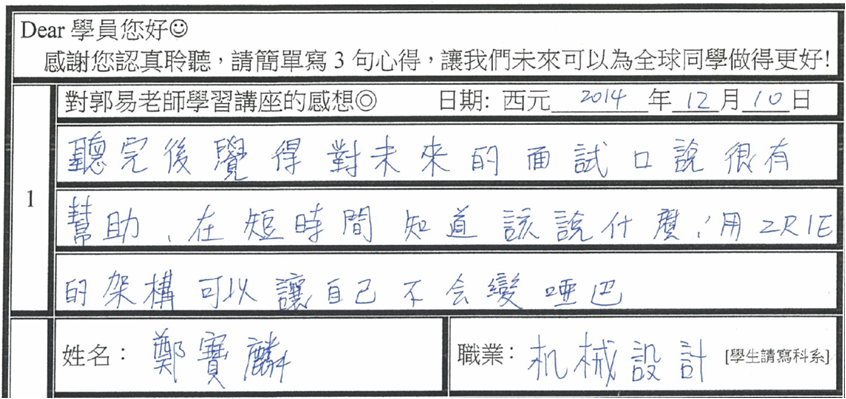 Dear 學員您好☺
感謝您認真聆聽，請簡單寫 3 句心得，讓我們未來可以為全球同學做得更好!
對郭易老師學習講座的感想◎ 日期: 西元 2014 年 12 月 10 日
1
聽完後覺得對未來的面試口說很有
幫助、在短時間知道該說什麼，用2RIE
的架構可以讓自己不会變啞巴
姓名： 鄭寶麟 職業： 机械設計 [學生請寫科系]